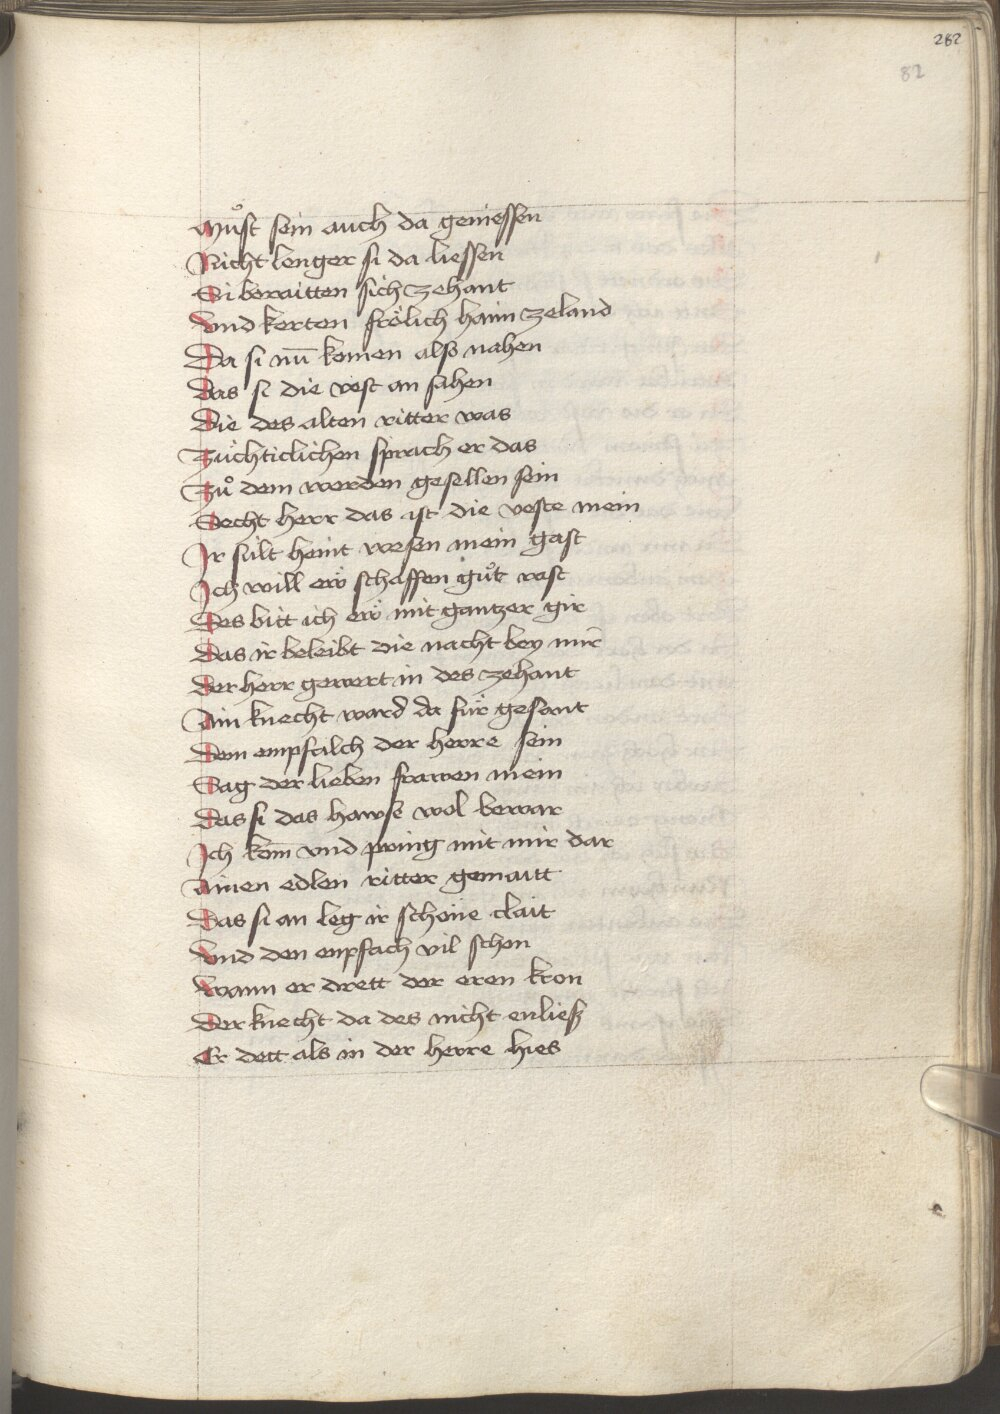 282
82
Muͦst sein auch da geniessen
Nicht lenger si da liessen
Si berraitten sich zehant
Vnd kerten frölich haim zeland
Da si nū komen alſß nahen
Das si die vest an sahen
Die des alten ritter was
Züchticlichen sprach er das
Zuͦ dem werden gesellen sein
Secht herr das ist die veste mein
Ir sült heint wesen mein gast
Ich will eẅ schaffen guͦt rast
Des bitt ich eẅ mit gantzer gir
Das ir beleibt die nacht bey mir
Der herr gewert in des zehant
Ain knecht ward da für gesant
Dem empfalch der herre sein
Sag der lieben frawen mein
Das si das hawse wol bewar
Ich kom̄ vnd pring mit mir dar
Ainen edlen ritter gemaitt
Das si an leg ir schöne clait
Vnd den enpfach vil schon
Wann er drett der eren kron
Der knecht da des nicht enließ
Er dett als in der herre hies